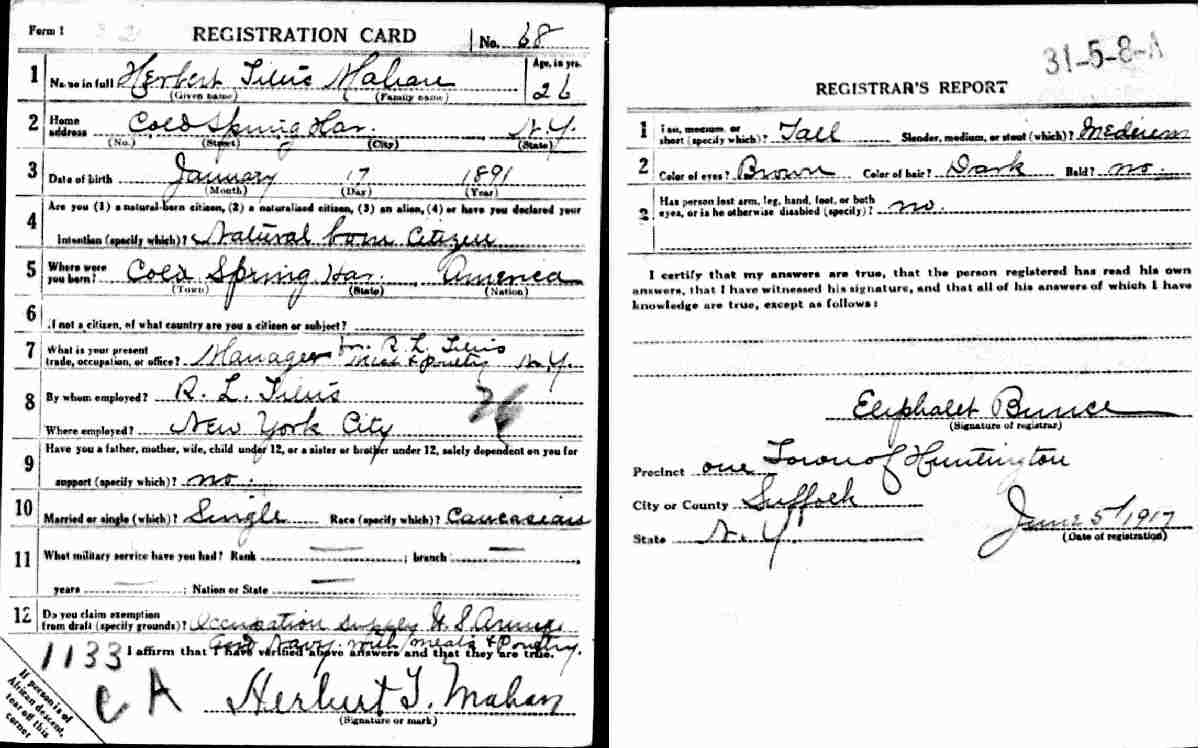 Form 1
REGISTRATION CARD
No. 68
1 Name in full Herbert Titus Mahan
Age, in yrs. 26
(Given name) (Family name)
2 Home address Cold Spring Har. N.Y.
(No.) (Street) (City) (State)
3 Date of birth January 17 1891
(Month) (Day) (Year)
4 Are you (1) a natural-born citizen, (2) a naturalized citizen, (3) an alien, (4) or have you declared your
intention (specify which)? Natural born Citizen
5 Where were you born? Cold Spring Har. America
(Town) (State) (Nation)
6 If not a citizen, of what country are you a citizen or subject?
7 What is your present trade, occupation, or office? Manager for R. L. Titus Meat & Poultry N.Y.
8 By whom employed? R. L. Titus
Where employed? New York City
9 Have you a father, mother, wife, child under 12, or a sister or brother under 12, solely dependent on you for
support (specify which)? no.
10 Married or single (which)? Single Race (specify which)? Caucasian
11 What military service have you had? Rank — ; branch —
years — ; Nation or State —
12 Do you claim exemption from draft (specify grounds)? Occupation supply U.S. Armee
and Navy with meats & Poultry.
I affirm that I have verified above answers and that they are true.
1133
C A
Herbert T. Mahan
(Signature or mark)
If person is of African descent, tear off this corner
31-5-8-A
REGISTRAR'S REPORT
1 Tall, medium, or short (specify which)? Tall Slender, medium, or stout (which)? Medium
2 Color of eyes? Brown Color of hair? Dark Bald? no.
3 Has person lost arm, leg, hand, foot, or both eyes, or is he otherwise disabled (specify)? no.
I certify that my answers are true, that the person registered has read his own
answers, that I have witnessed his signature, and that all of his answers of which I have
knowledge are true, except as follows:
Eliphalet Bunce
(Signature of registrar)
Precinct one Town of Huntington
City or County Suffock
State N.Y.
June 5/1917
(Date of registration)